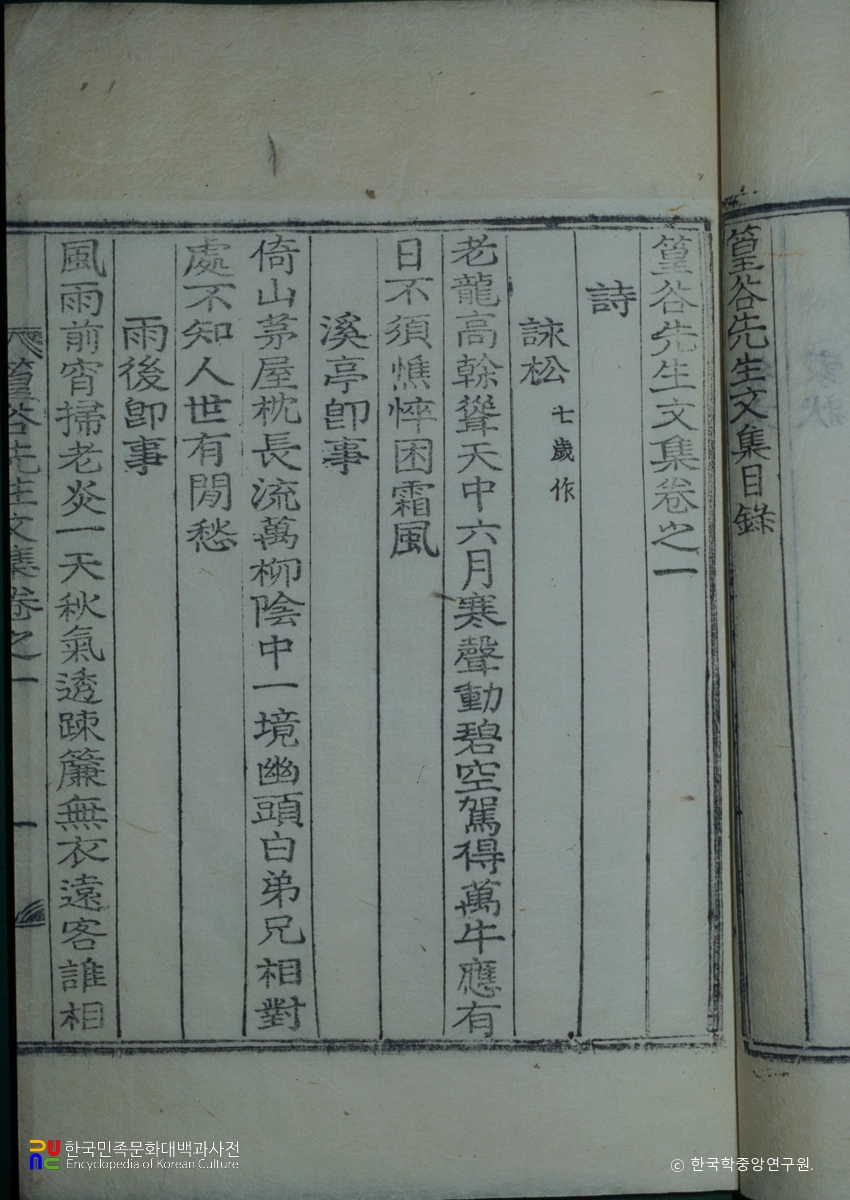 篁谷先生文集目錄
篁谷先生文集卷之一
詩
詠松 七歲作
老龍高榦聳天中六月寒聲動碧空駕得萬牛應有
日不須憔悴困霜風
溪亭卽事
倚山茅屋枕長流萬柳陰中一境幽頭白弟兄相對
處不知人世有閒愁
雨後卽事
風雨前宵掃老炎一天秋氣透踈簾無衣遠客誰相
篁谷先生文集卷之一
一
한국민족문화대백과사전
Encyclopedia of Korean Culture
© 한국학중앙연구원.